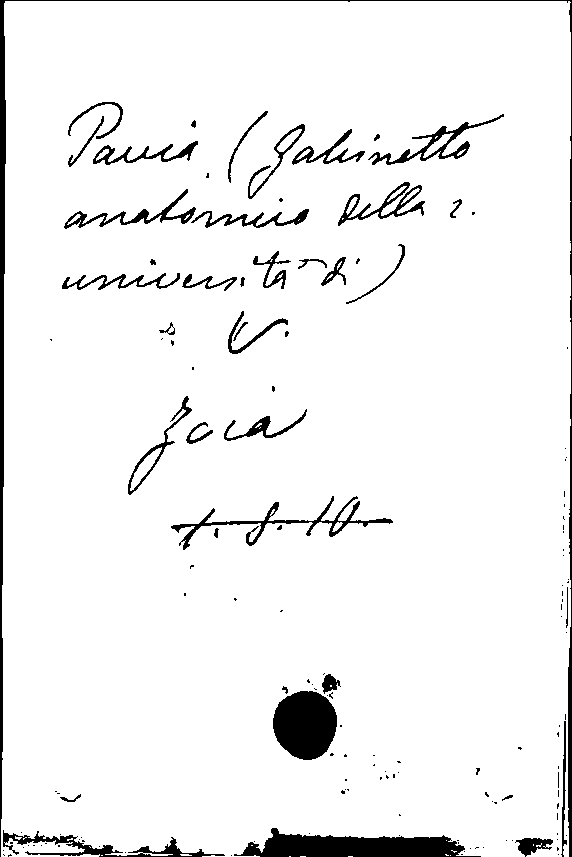 Pavia (Gabinetto
anatomico della r.
università di)
V.
Zoia
1. 8. 10.